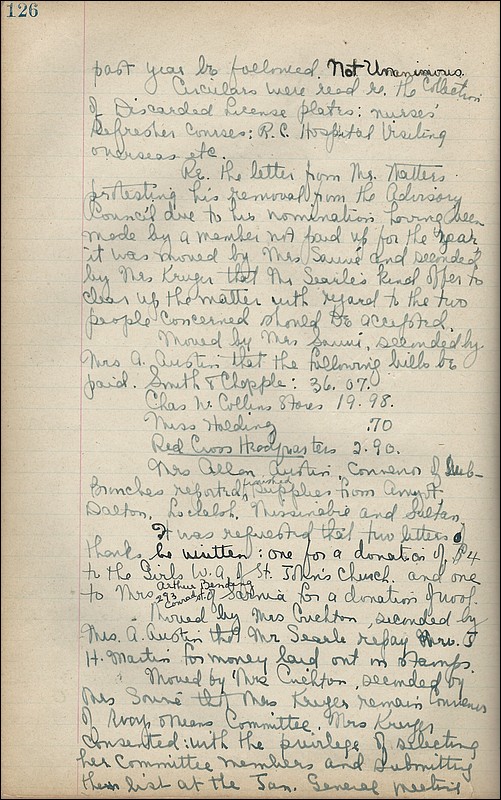 126
past year be followed. Not Unanimous.
Circulars were read re. the Collection
of Discarded License plates: nurses'
Refresher Courses: R.C. Hospital Visiting
overseas etc.
Re. the letter from Mr. Natters
protesting his removal from the Advisory
Council due to his nomination having been
made by a member not paid up for the year
it was moved by Mrs and seconded
by Mrs Kruger that Mr Searle's kind offer to
clear up the matter with regard to the two
people concerned should be accepted.
Moved by Mrs seconded by
Mrs A. Austin that the following bills be
paid. Smith & Chapple: 36.07.
Chas W. Collins Stores 19.98.
Miss Holding .70
Red Cross Headquarters 2.90.
Mrs Allan Austin, Convenor of Sub-
Branches reported finished supplies from Amyot,
Dalton, Lochalsh, Missinabie and Sultan.
It was requested that two letters of
thanks be written: one for a donation of $4
to the Girls W.A. of St. John's Church and one
to Mrs Arthur
293 of Sarnia for a donation of wool.
Moved by Mrs Crichton, seconded by
Mrs. A. Austin that Mr Searle repay Mrs. J
H. Martin for money laid out in stamps.
Moved by Mrs Crichton, seconded by
Mrs that Mrs Kruger remain Convenor
of Ways & Means Committee. Mrs Kruger
consented: with the privilege of selecting
her Committee members and submitting
them list at the Jan. General meeting